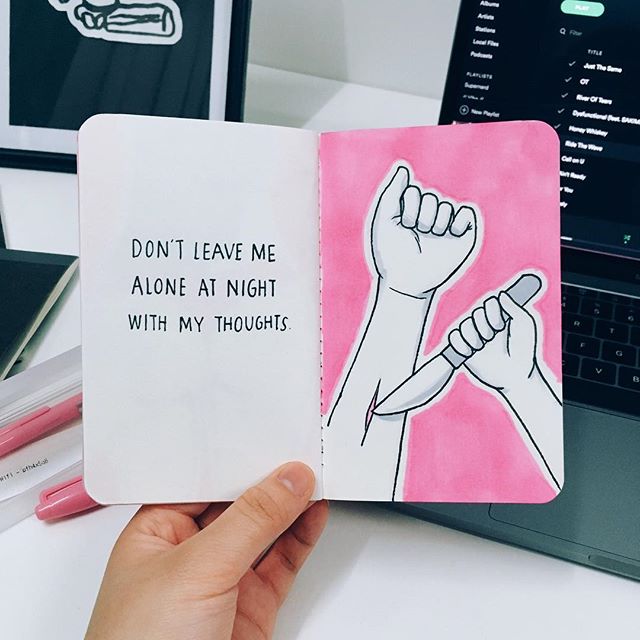 DON'T LEAVE ME
ALONE AT NIGHT
WITH MY THOUGHTS.
Albums
Artists
Stations
Local Files
Podcasts
PLAYLISTS
Supernard
New Playlist
PLAY
Filter
TITLE
Just The Same
OT
River Of Tears
Dysfunctional (feat.
Honey Whiskey
Ride The Wave
Call on U
Ain't Ready
You
Ready